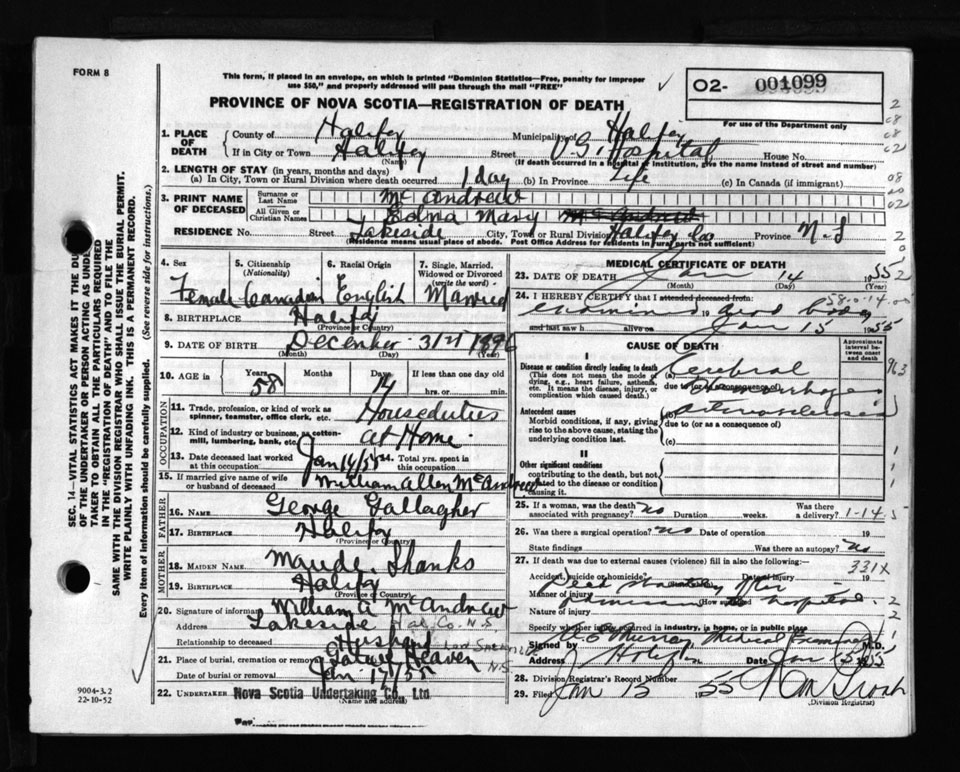 FORM 8
This form, if placed in an envelope, on which is printed "Dominion Statistics—Free, penalty for improper
use $50," and properly addressed will pass through the mail "FREE"
O2- 001099
For use of the Department only
PROVINCE OF NOVA SCOTIA—REGISTRATION OF DEATH
1. PLACE OF DEATH
County of Halifax Municipality of Halifax
If in City or Town Halifax Street V.G. Hospital House No.
(Name) (If death occurred in a hospital or institution, give the name instead of street and number)
2. LENGTH OF STAY (in years, months and days)
(a) In City, Town or Rural Division where death occurred 1 day (b) In Province Life (c) In Canada (if immigrant)
3. PRINT NAME OF DECEASED
Surname or Last Name McAndrew
All Given or Christian Names Edna Mary
RESIDENCE No. Street Lakeside City, Town or Rural Division Halifax Co Province N.S
(Residence means usual place of abode. Post Office Address for residents in rural parts not sufficient)
4. Sex
Female
5. Citizenship (Nationality)
Canadian
6. Racial Origin
English
7. Single, Married, Widowed or Divorced (write the word)
Married
8. BIRTHPLACE Halifax
(Province or Country)
9. DATE OF BIRTH December 31st 1896
(Month) (Day) (Year)
10. AGE in Years Months Days If less than one day old
58 14 hrs. or min.
OCCUPATION
11. Trade, profession, or kind of work as spinner, teamster, office clerk, etc. Houseduties
12. Kind of industry or business, as cotton-mill, lumbering, bank, etc. at Home
13. Date deceased last worked at this occupation Jan 14/55 14. Total yrs. spent in this occupation
15. If married give name of wife or husband of deceased William Allen McAndrew
FATHER
16. NAME George Gallagher
17. BIRTHPLACE Halifax
(Province or Country)
MOTHER
18. MAIDEN NAME Maude Shanks
19. BIRTHPLACE Halifax
(Province or Country)
20. Signature of informant William A McAndrew
Address Lakeside Hal. Co. N.S.
Relationship to deceased Husband
21. Place of burial, cremation or removal
N.S
Date of burial or removal Jan 17/55
22. UNDERTAKER Nova Scotia Undertaking Co., Ltd.
(Name and address)
9004-3.2
22-10-52
MEDICAL CERTIFICATE OF DEATH
23. DATE OF DEATH Jan 14 1955
(Month) (Day) (Year)
24. I HEREBY CERTIFY that I attended deceased from:
examined 19 dead body
and last saw h alive on Jan 15 1955
CAUSE OF DEATH
Approximate interval between onset and death
I
Disease or condition directly leading to death
(This does not mean the mode of dying, e.g., heart failure, asthenia, etc. It means the disease, injury, or complication which caused death.)
(a) Cerebral
due to (or as a consequence of) Haemorrhage
Antecedent causes
Morbid conditions, if any, giving rise to the above cause, stating the underlying condition last.
(b) arteriosclerosis
due to (or as a consequence of)
(c)
II
Other significant conditions
contributing to the death, but not related to the disease or condition causing it.
25. If a woman, was the death associated with pregnancy? no Duration weeks. Was there a delivery?
1-14-5
26. Was there a surgical operation? no Date of operation 19
State findings Was there an autopsy? no
27. If death was due to external causes (violence) fill in also the following:—
331X
Accident, suicide or homicide? Date of injury 19
Manner of injury How sustained
Nature of injury
admission to hospital.
Specify whether injury occurred in industry, in home, or in public place
Signed by Murray Medical Examiner M.D.
Address Halifax Date Jan 1955
28. Division Registrar's Record Number
29. Filed Jan 15 1955
(Division Registrar)
SEC. 14—VITAL STATISTICS ACT MAKES IT THE DUTY
OF THE UNDERTAKER OR PERSON ACTING AS UNDERTAKER
TO OBTAIN ALL THE PARTICULARS REQUIRED
IN THE "REGISTRATION OF DEATH" AND TO FILE THE
SAME WITH THE DIVISION REGISTRAR WHO SHALL ISSUE THE BURIAL PERMIT.
WRITE PLAINLY WITH UNFADING INK. THIS IS A PERMANENT RECORD.
Every item of information should be carefully supplied. (See reverse side for instructions.)